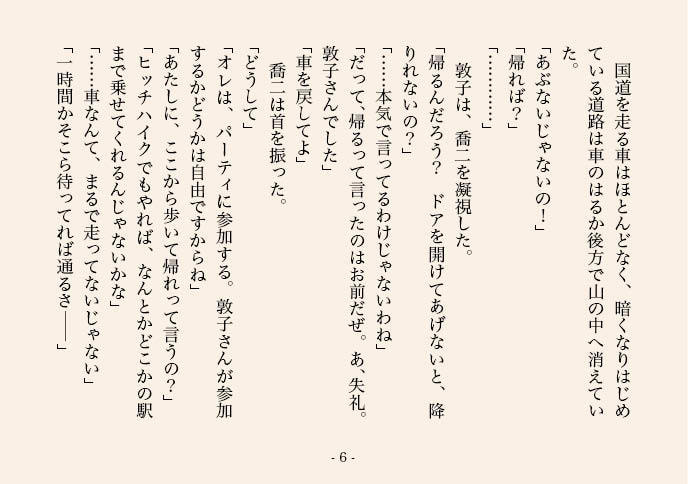 国道を走る車はほとんどなく、暗くなりはじめ
ている道路は車のはるか後方で山の中へ消えてい
た。
「あぶないじゃないの！」
「帰れば？」
「…………」
　敦子は、喬二を凝視した。
「帰るんだろう？　ドアを開けてあげないと、降
りれないの？」
「……本気で言ってるわけじゃないわね」
「だって、帰るって言ったのはお前だぜ。あ、失礼。
敦子さんでした」
「車を戻してよ」
　喬二は首を振った。
「どうして」
「オレは、パーティに参加する。敦子さんが参加
するかどうかは自由ですからね」
「あたしに、ここから歩いて帰れって言うの？」
「ヒッチハイクでもやれば、なんとかどこかの駅
まで乗せてくれるんじゃないかな」
「……車なんて、まるで走ってないじゃない」
「一時間かそこら待ってれば通るさ――」
- 6 -